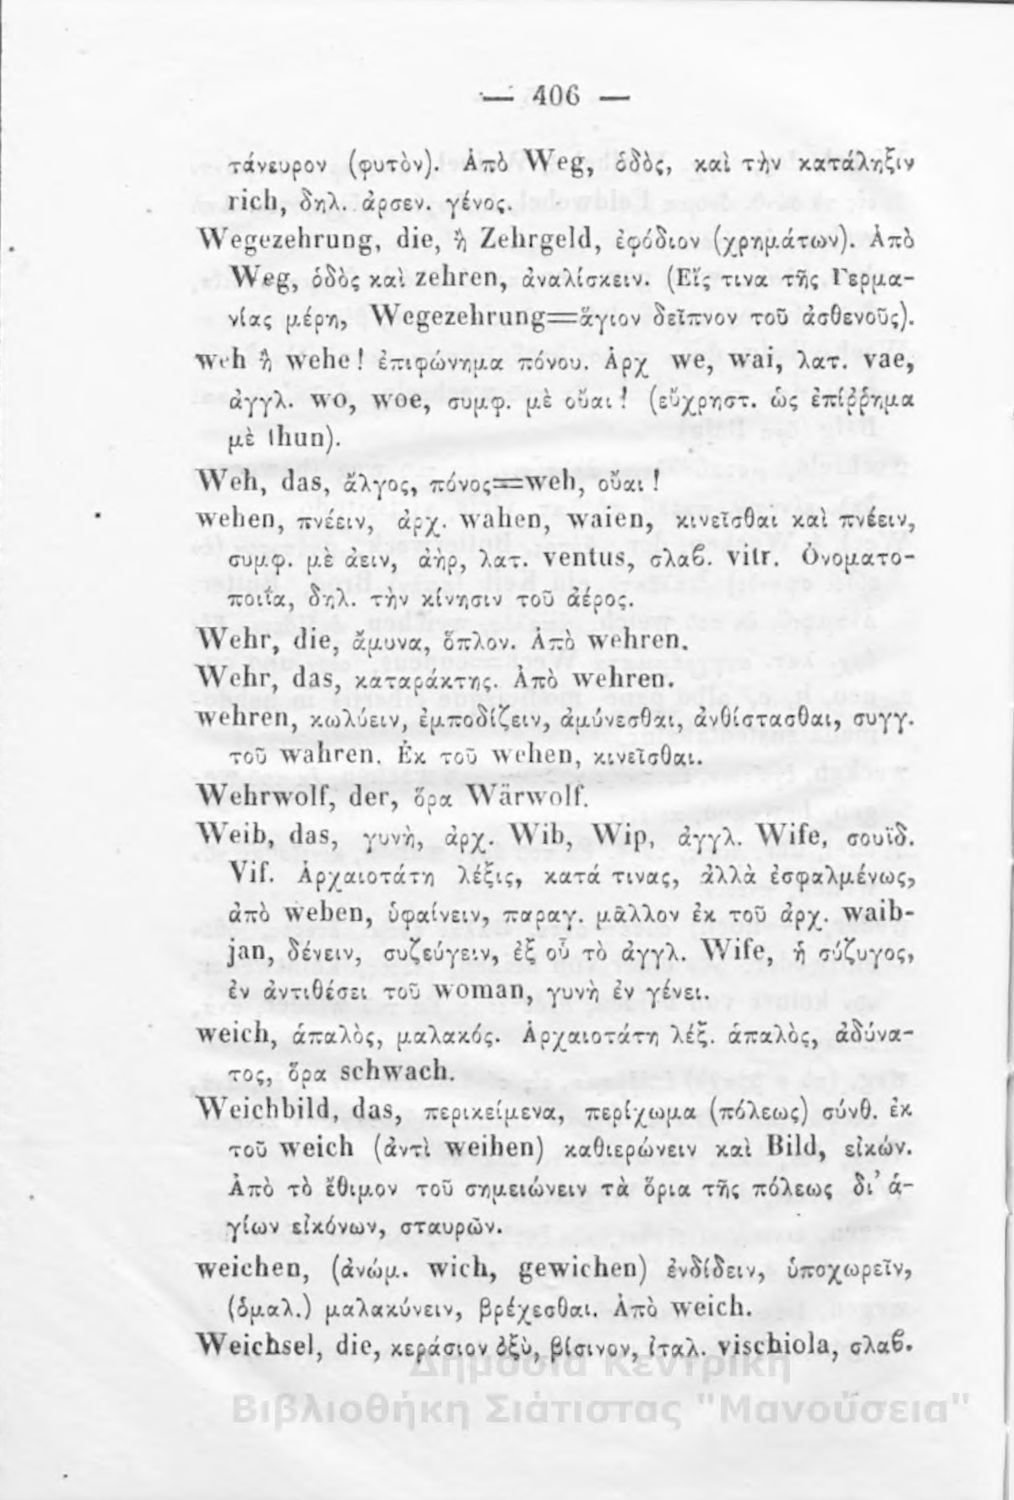 — 406 —
τάνευρον (φυτὸν). Ἀπὸ Weg, ὁδὸς, καὶ τὴν κατάληξιν
rich, δηλ. ἀρσεν. γένος.
Wegezehrung, die, ἢ Zehrgeld, ἐφόδιον (χρημάτων). Ἀπὸ
Weg, ὁδὸς καὶ zehren, ἀναλίσκειν. (Εἴς τινα τῆς Γερμα-
νίας μέρη, Wegezehrung=ἅγιον δεῖπνον τοῦ ἀσθενοῦς).
weh ἢ wehe! ἐπιφώνημα πόνου. Ἀρχ we, wai, λατ. vae,
ἀγγλ. wo, woe, συμφ. μὲ οὔαι! (εὔχρηστ. ὡς ἐπίῤῥημα
μὲ thun).
Weh, das, ἄλγος, πόνος=weh, οὔαι!
wehen, πνέειν, ἀρχ. wahen, waien, κινεῖσθαι καὶ πνέειν,
συμφ. μὲ ἀειν, ἀὴρ, λατ. ventus, σλαβ. vitr. Ὀνοματο-
ποιΐα, δηλ. τὴν κίνησιν τοῦ ἀέρος.
Wehr, die, ἄμυνα, ὅπλον. Ἀπὸ wehren.
Wehr, das, καταράκτης. Ἀπὸ wehren.
wehren, κωλύειν, ἐμποδίζειν, ἀμύνεσθαι, ἀνθίστασθαι, συγγ.
τοῦ wahren. Ἐκ τοῦ wehen, κινεῖσθαι.
Wehrwolf, der, ὅρα Wärwolf.
Weib, das, γυνὴ, ἀρχ. Wib, Wip, ἀγγλ. Wife, σουϊδ.
Vif. Ἀρχαιοτάτη λέξις, κατά τινας, ἀλλὰ ἐσφαλμένως,
ἀπὸ weben, ὑφαίνειν, παραγ. μᾶλλον ἐκ τοῦ ἀρχ. waib-
jan, δένειν, συζεύγειν, ἐξ οὗ τὸ ἀγγλ. Wife, ἡ σύζυγος,
ἐν ἀντιθέσει τοῦ woman, γυνὴ ἐν γένει.
weich, ἁπαλὸς, μαλακός. Ἀρχαιοτάτη λέξ. ἁπαλὸς, ἀδύνα-
τος, ὅρα schwach.
Weichbild, das, περικείμενα, περίχωμα (πόλεως) σύνθ. ἐκ
τοῦ weich (ἀντὶ weihen) καθιερώνειν καὶ Bild, εἰκών.
Ἀπὸ τὸ ἔθιμον τοῦ σημειώνειν τὰ ὅρια τῆς πόλεως δι᾽ ἁ-
γίων εἰκόνων, σταυρῶν.
weichen, (ἀνώμ. wich, gewichen) ἐνδίδειν, ὑποχωρεῖν,
(ὁμαλ.) μαλακύνειν, βρέχεσθαι. Ἀπὸ weich.
Weichsel, die, κεράσιον ὀξὺ, βίσινον, ἰταλ. vischiola, σλαβ.
Δημόσια Κεντρική
Βιβλιοθήκη Σιάτιστας "Μανούσεια"